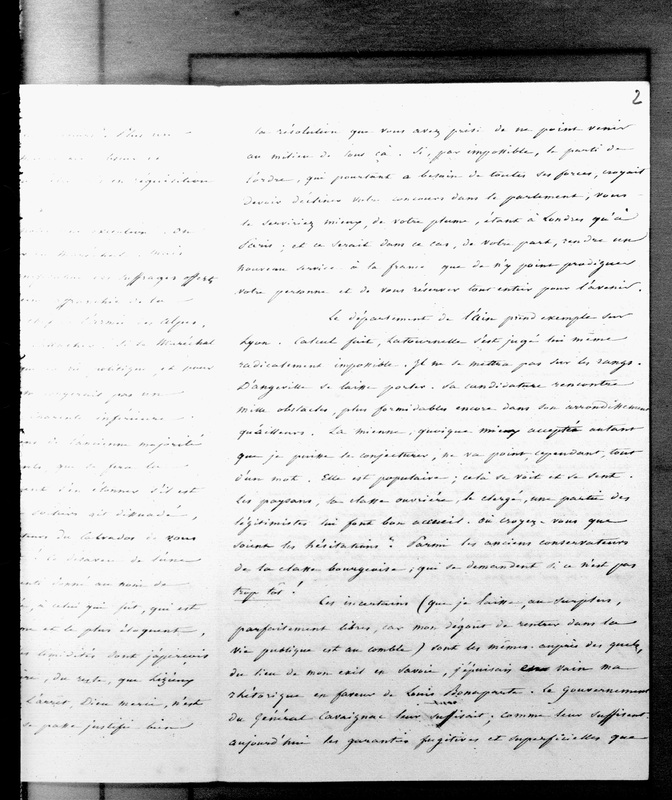 2
la résolution que vous avez prise de ne point venir
au milieu de tout çà. Si, par impossible, le parti de
l'ordre, qui pourtant a besoin de toutes ses forces, croyait
devoir décliner votre concours dans le parlement, vous
le serviriez mieux, de votre plume, étant à Londres qu'à
Paris; et ce serait dans ce cas, de votre part, rendre un
nouveau service à la france que de n'y point prodiguer
votre personne et de vous réserver tout entier pour l'avenir.
Le département de l'ain prend exemple sur
Lyon. Calcul fait, Latournelle s'est jugé lui même
radicalement impossible. Il ne se mettra pas sur les rangs.
D'angeville se laisse porter. Sa candidature rencontre
mille obstacles, plus formidables encore dans son arrondissement
qu'ailleurs. La mienne, quoique mieux acceptée autant
que je puisse le conjecturer, ne va point, cependant, tout
d'un mot. Elle est populaire; celà se voit et se sent.
Les paysans, la classe ouvrière, le clergé, une partie des
légitimistes lui font bon accueil. Où croyez-vous que
soient les hésitations? Parmi les anciens conservateurs
de la classe bourgeoise; qui se demandent si ce n'est pas
trop tôt!
Ces incertains (que je laisse, au surplus,
parfaitement libres, car mon dégoût de rentrer dans la
vie publique est au comble) sont les mêmes auprès des quels,
du lieu de mon exil en Savoie, j'épuisais en vain ma
rhétorique en faveur de Louis Bonaparte. Le Gouvernement
du Général Cavaignac leur suffisait, comme leur suffisent
aujourd'hui les garanties fugitives et superficielles que
Plus un
réquisition
suffrages offerts
de la
Alpes,
Maréchal
politique, et pour
pas un
inférieure
l'ancienne majorité
que se fera le
étonner s'il est
ait dissuadé,
du Calvados de vous
donné au nom de
à celui qui fut, qui est
et le plus éloquent,
timidités sont j'aperçois
du reste, que Lizieux
Dieu merci, n'est
passe justifie bien